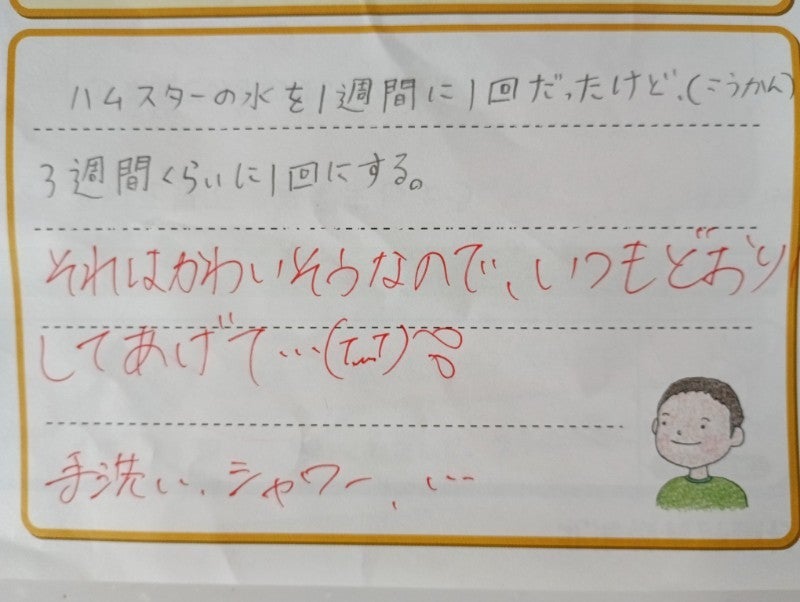 ハムスターの水を1週間に1回だったけど、(こうかん)
3週間くらいに1回にする。
それはかわいそうなので、いつもどおり
してあげて…(T_T)
手洗い、シャワー、…